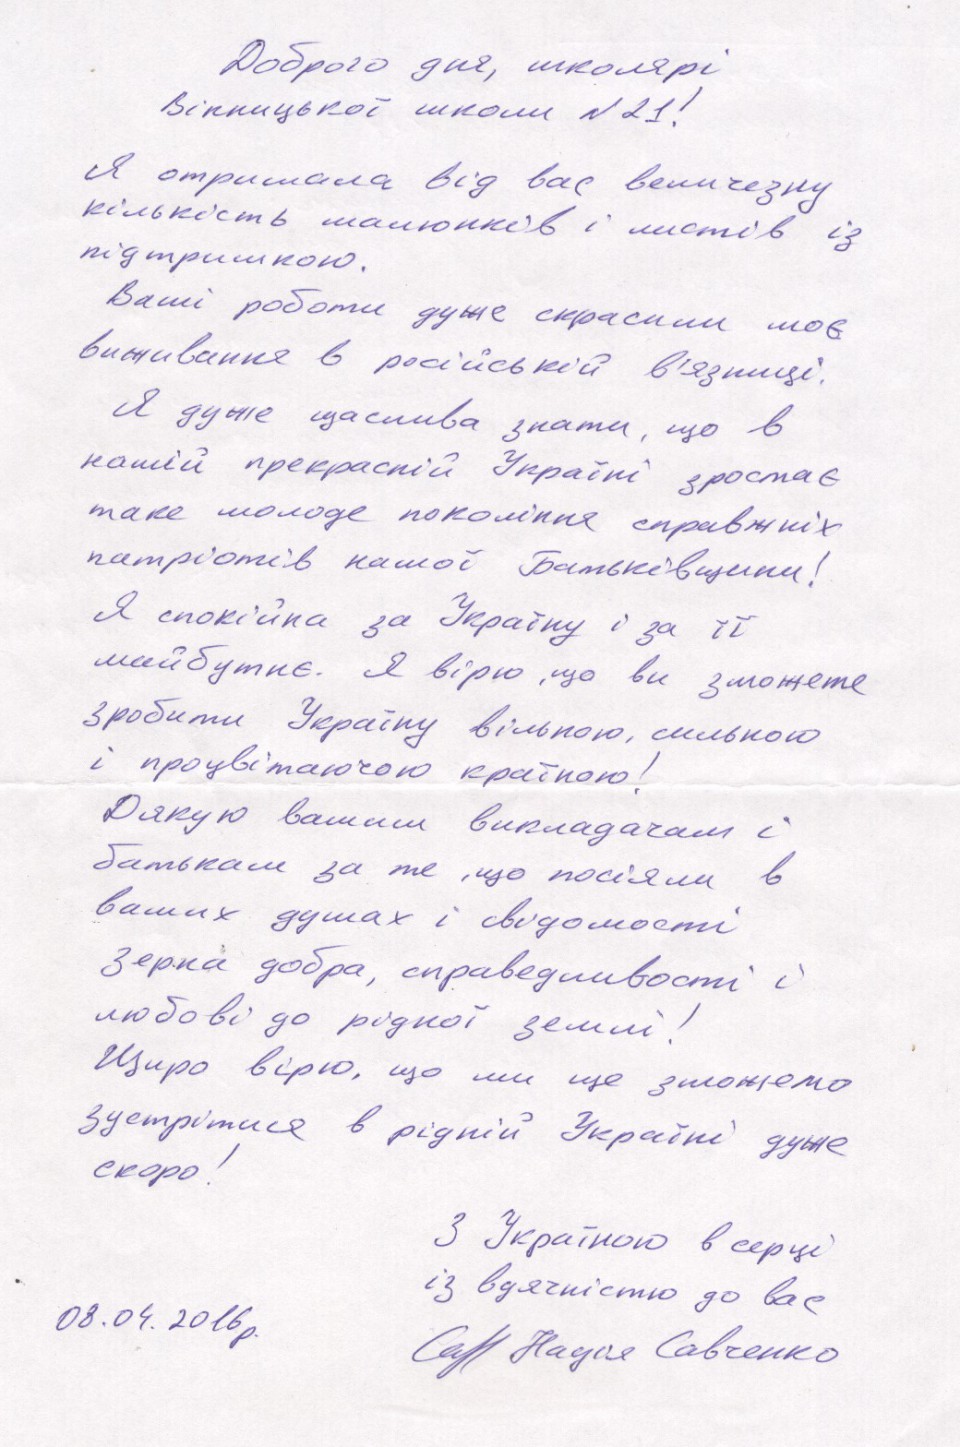 Доброго дня, школярі
Вінницької школи №21!
Я отримала від вас величезну
кількість малюнків і листів із
підтримкою.
Ваші роботи дуже скрасили моє
виживання в російській в'язниці.
Я дуже щаслива знати, що в
нашій прекрасній Україні зростає
таке молоде покоління справжніх
патріотів нашої Батьківщини!
Я спокійна за Україну і за її
майбутнє. Я вірю, що ви зможете
зробити Україну вільною, сильною
і процвітаючою країною!
Дякую вашим викладачам і
батькам за те, що посіяли в
ваших душах і свідомості
зерна добра, справедливості і
любові до рідної землі!
Щиро вірю, що ми ще зможемо
зустрітися в рідній Україні дуже
скоро!
З Україною в серці
із вдячністю до вас
08.04.2016р.
Надія Савченко